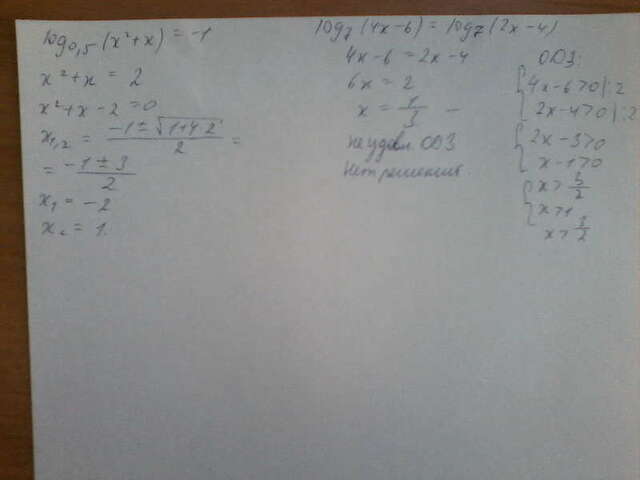 log₀,₅(x²+x) = -1
x²+x = 2
x²+x-2=0
x₁,₂ = (-1±√(1+4·2))/2 =
= (-1±3)/2
x₁ = -2
x₂ = 1.
log₇(4x-6) = log₇(2x-4)
4x-6=2x-4
6x=2
x = 1/3 -
не удовл. ОДЗ
Нет решений.
ОДЗ:
{4x-6>0|:2
2x-4>0|:2
{2x-3>0
x-1>0
{x>3/2
x>1
x>3/2